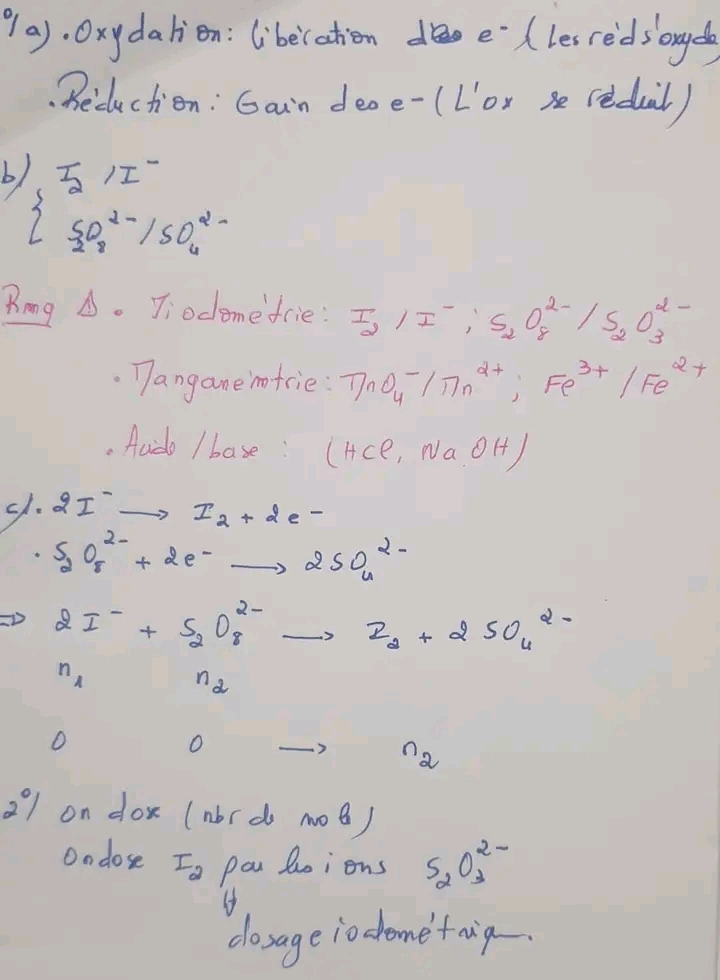 °/ a) . Oxydation : libération des e- ( Les réd s'oxyde
. Réduction : Gain des e- ( L'ox se réduit )
b) { I₂ / I⁻
S₂O₈²⁻ / SO₄²⁻
Rmq ∆ . Iodométrie : I₂ / I⁻ ; S₂O₈²⁻ / S₂O₃²⁻
. Manganémtrie : MnO₄⁻ / Mn²⁺ ; Fe³⁺ / Fe²⁺
. Acido / base : ( HCl, NaOH )
c) . 2I⁻ → I₂ + 2e⁻
. S₂O₈²⁻ + 2e⁻ → 2SO₄²⁻
⇒ 2I⁻ + S₂O₈²⁻ → I₂ + 2SO₄²⁻
n₁ n₂
0 0 → n₂
2°/ on dose ( nbr de mole )
On dose I₂ par les ions S₂O₃²⁻
⇓
dosage iodométrique.